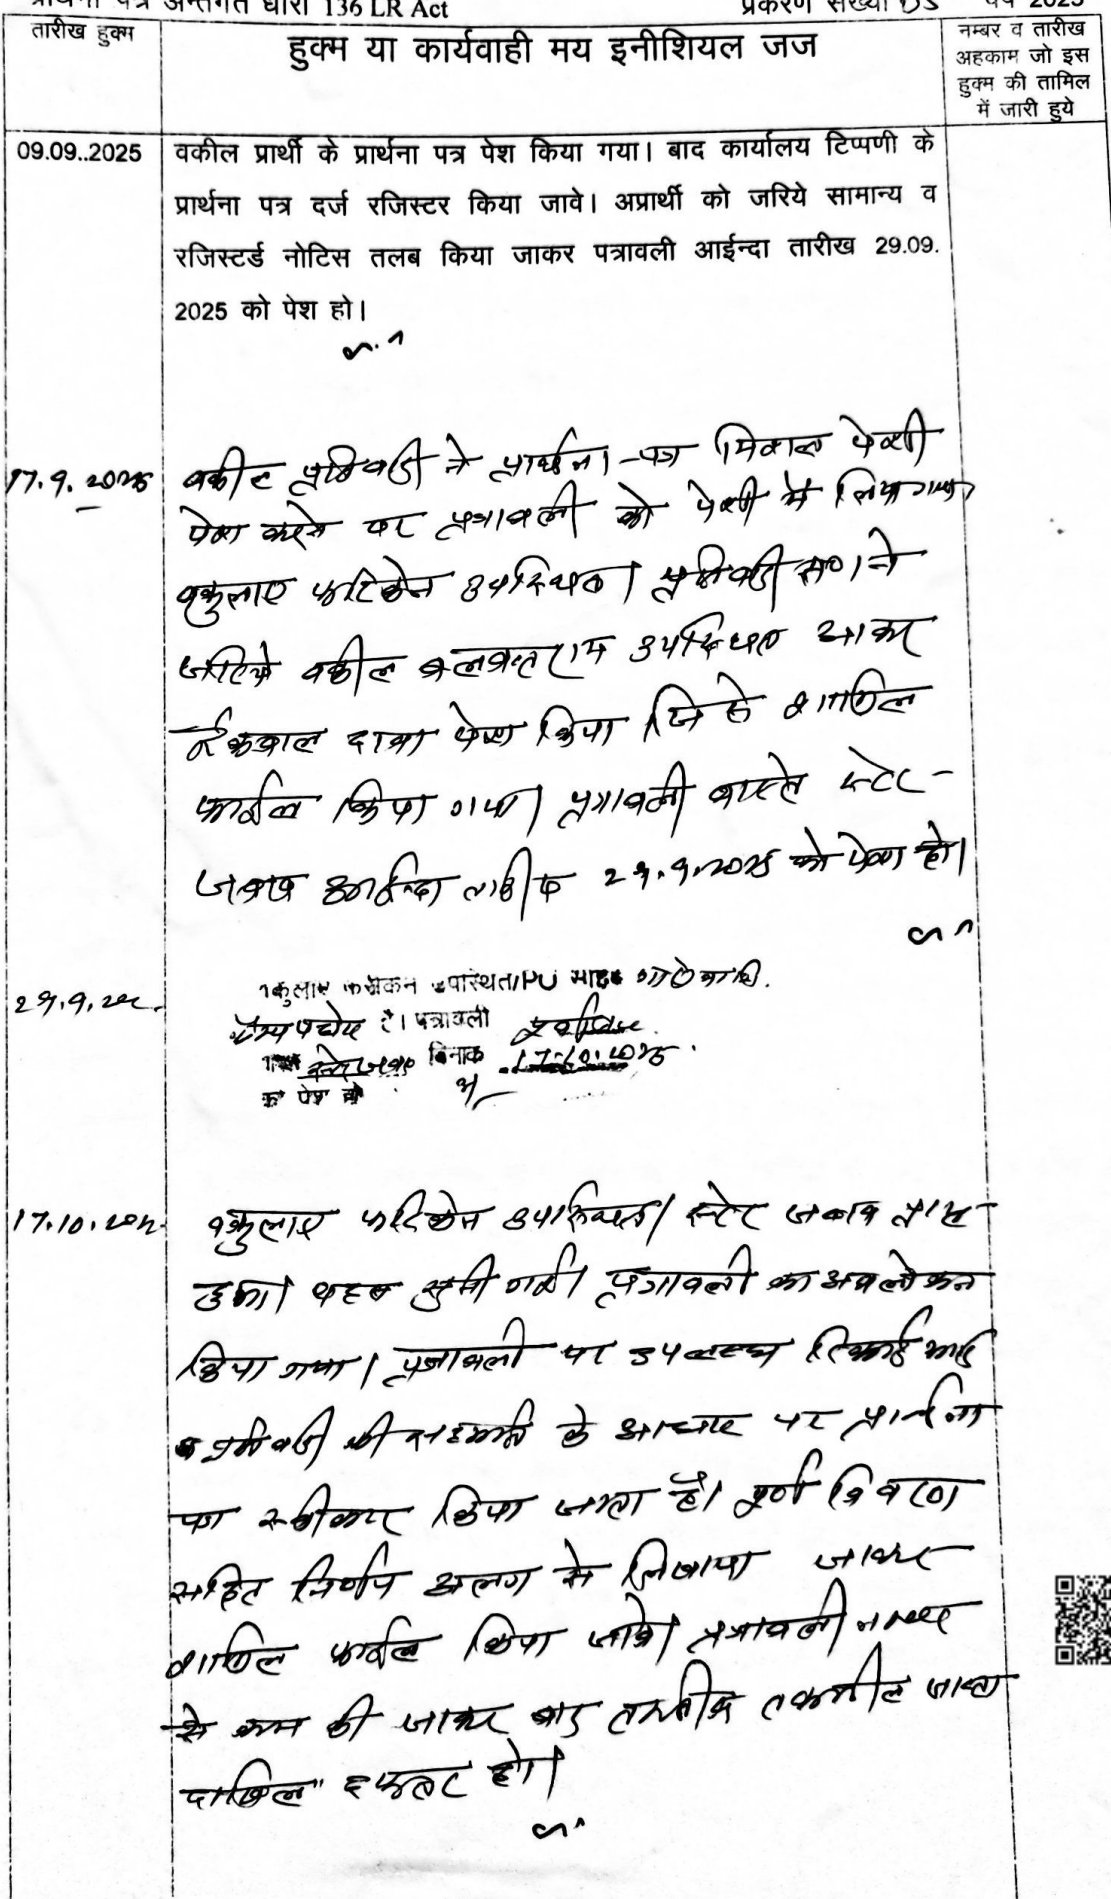 प्रार्थना पत्र अन्तर्गत धारा 136 LR Act प्रकरण संख्या वर्ष 2025
तारीख हुक्म
हुक्म या कार्यवाही मय इनीशियल जज
नम्बर व तारीख
अहकाम जो इस
हुक्म की तामिल
में जारी हुये
09.09..2025 वकील प्रार्थी के प्रार्थना पत्र पेश किया गया। बाद कार्यालय टिप्पणी के
प्रार्थना पत्र दर्ज रजिस्टर किया जावे। अप्रार्थी को जरिये सामान्य व
रजिस्टर्ड नोटिस तलब किया जाकर पत्रावली आईन्दा तारीख 29.09.
2025 को पेश हो।
17.9.2025 वकील प्रतिवादी ने प्रार्थना-पत्र मिसल पेशी
पेश करने पर पत्रावली को पेशी में लिया गया
वकुलाए फरिकेन उपस्थित। प्रतिवादी सं० 1 ने
जरिये वकील बलवन्तराम उपस्थित आकर
ईकबाल दावा पेश किया जिसे शामिल
फाईल किया गया। पत्रावली वास्ते स्टेट-
जवाब आईन्दा तारीख 29.9.2025 को पेश हो।
29.9.202 वकुलाए फरिकेन उपस्थित। PO
है। पत्रावली
स्टेट जवाब दिनांक 17.10.2025
को पेश हो
17.10.202 वकुलाए फरिकेन उपस्थित। स्टेट जवाब प्राप्त
हुआ। बहस सुनी गई। पत्रावली का अवलोकन
किया गया। पत्रावली पर उपलब्ध रिकार्ड
व प्रतिवादी की सहमति के आधार पर प्रार्थना
पत्र स्वीकार किया जाता है। पूर्ण विवरण
सहित निर्णय अलग से लिखाया जाकर
शामिल फाईल किया जावे। पत्रावली नम्बर
से कम की जाकर बाद तरतीब तकमील जाब्ता
दाखिल दफ्तर हो।